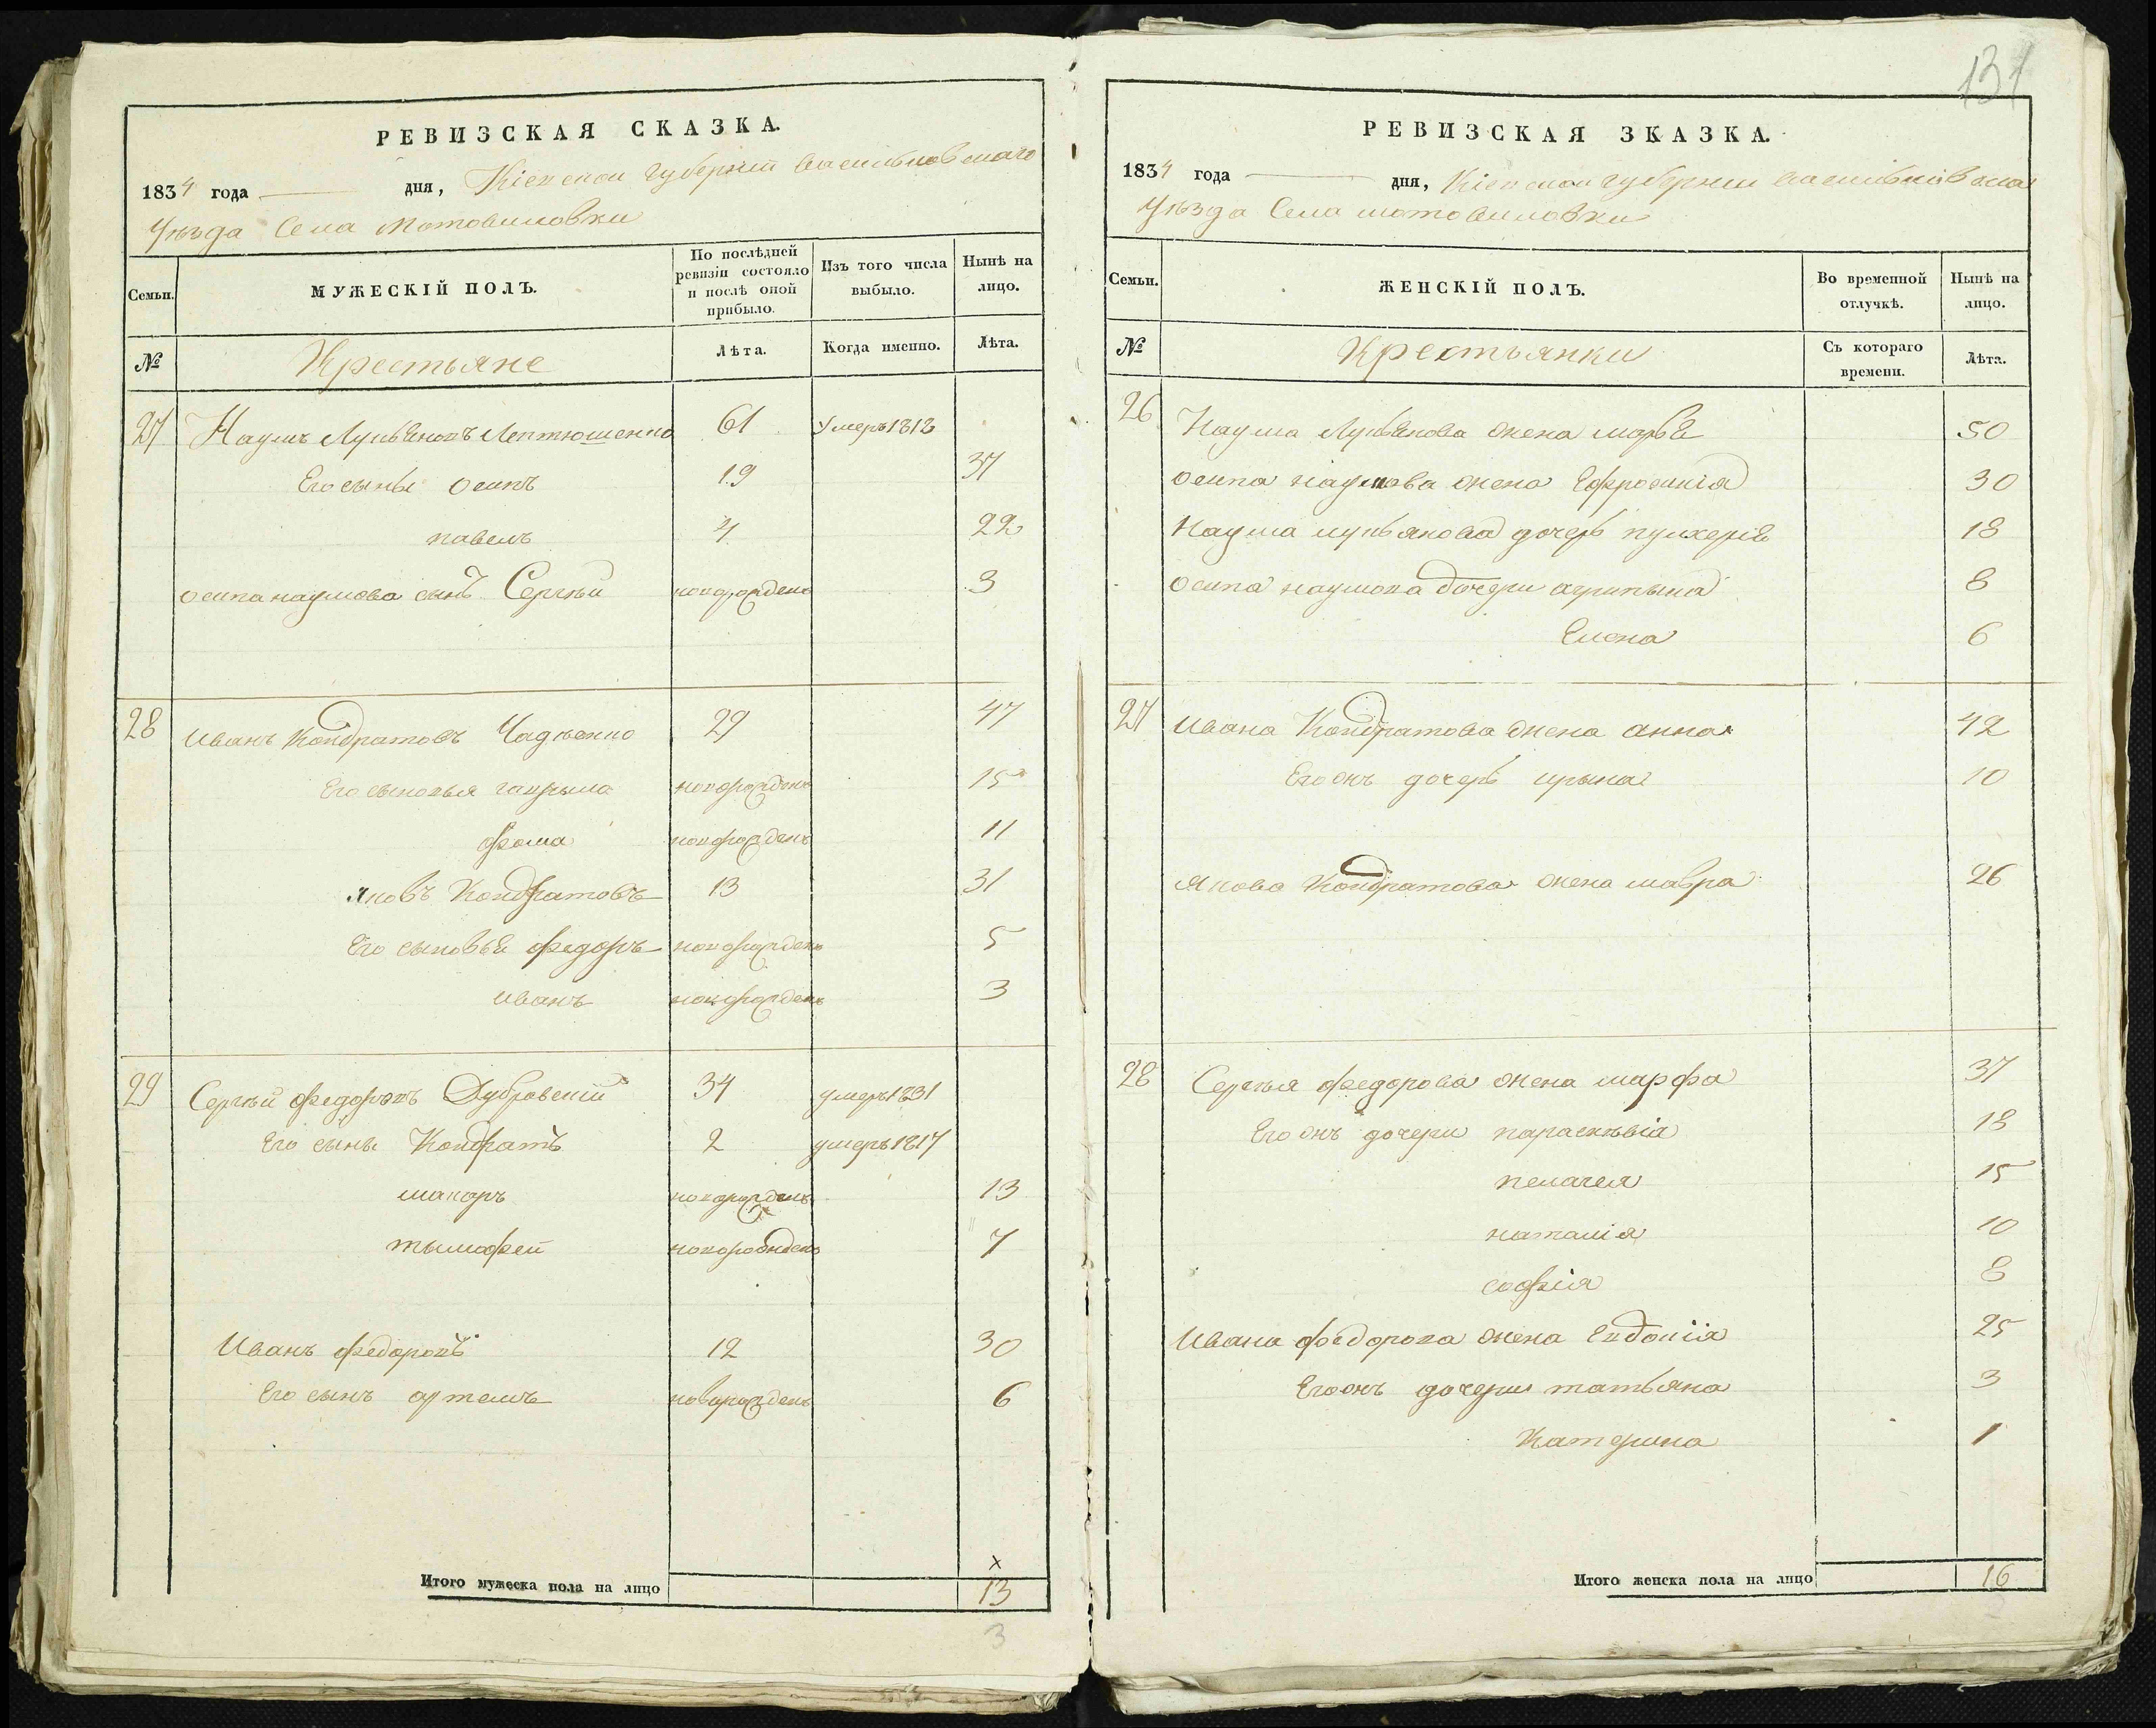 РЕВИЗСКАЯ СКАЗКА.
1834 года дня, Кіевской губерніи Васильковскаго
Уѣзда Села Мотовиловки
Семьи. МУЖЕСКІЙ ПОЛЪ. По послѣдней ревизіи состояло и послѣ оной прибыло. Изъ того числа выбыло. Нынѣ на лицо.
№ Крестьяне Лѣта. Когда именно. Лѣта.
27 Наумъ Лукьяновъ 61 Умеръ 1818
Его сыны Осипъ 19 37
павелъ 4 22
осипа наумова сынъ Сергѣй новорожденъ 3
28 Иванъ Кондратовъ 29 47
Его сыновья гаврыла новорожденъ 15
фома новорожденъ 11
яковъ Кондратовъ 13 31
Его сыновья федоръ новорожденъ 5
иванъ новорожденъ 3
29 Сергѣй федоровъ Дубровскій 34 умеръ 1831
Его сыны Кондратъ 2 умеръ 1817
макаръ новорожденъ 13
тымофей новорожденъ 7
Иванъ федоровъ 12 30
Его сынъ артемъ новорожденъ 6
Итого мужеска пола на лицо 13
3
131
РЕВИЗСКАЯ ЗКАЗКА.
1834 года дня, Кіевской губерніи Васильковскаго
Уѣзда Села мотовиловки
Семьи. ЖЕНСКІЙ ПОЛЪ. Во временной отлучкѣ. Нынѣ на лицо.
№ Крестьянки Съ котораго времени. Лѣта.
26 Наума Лукьянова жена марья 50
осипа наумова жена Ефросинія 30
Наума лукьянова дочерь пулхерія 18
осипа наумова дочери агрипына 8
Елена 6
27 ивана Кондратова жена анна 42
Его жъ дочерь ирына 10
якова Кондратова жена мавра 26
28 Сергѣя федорова жена марфа 37
Его жъ дочери параскѣвія 18
пелагея 15
наталія 10
софія 8
Ивана федорова жена Евдокія 25
Его жъ дочери татьяна 3
Катерина 1
Итого женска пола на лицо 16